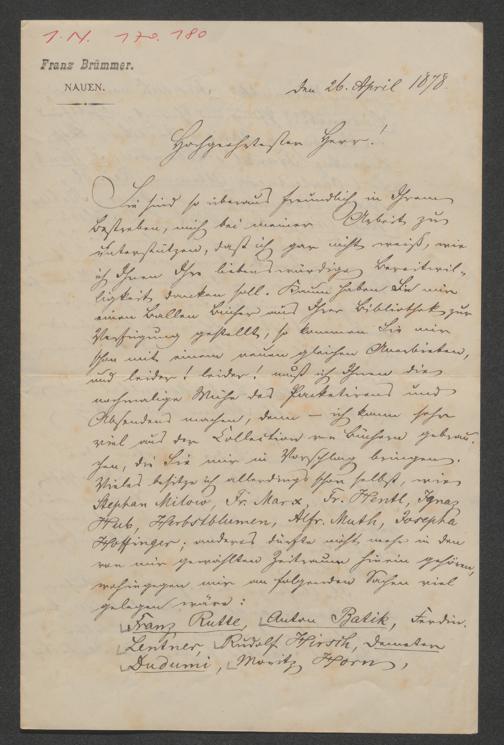 I.N. 170.180
Franz Brümmer.
NAUEN.
den 26. April 1878
Hochgeehrtester Herr!
Sie sind so überaus freundlich in Ihrem
Bestreben, mich bei meiner Arbeit zu
unterstützen, daß ich gar nicht weiß, wie
ich Ihnen Ihre liebenswürdige Bereitwil-
ligkeit danken soll. Kaum haben Sie mir
einen Ballen Bücher aus Ihrer Bibliothek zur
Verfügung gestellt, so kommen Sie mir
schon mit einem neuen gleichen Anerbieten,
und leider! leider! muß ich Ihnen die
nochmalige Mühe des Packetirens und
Absendens machen, denn – ich kann sehr
viel aus der Collection von Büchern gebrau-
chen, die Sie mir in Vorschlag bringen.
Vieles besitze ich allerdings schon selbst, wie
Stephan Milow, Fr. Marx, Fr. Hentl, Ignaz
Hub, Herbstblumen, Alfr. Muth, Josepha
Hoffinger; anderes dürfte nicht mehr in den
von mir gewählten Zeitraum hinein gehören,
wohingegen mir an folgenden Sachen viel
gelegen wäre:
Franz Rutte, Anton Batik, Ferdin.
Lentner, Rudolf Hirsch, Demeter
Dudumi, Moritz Horn,